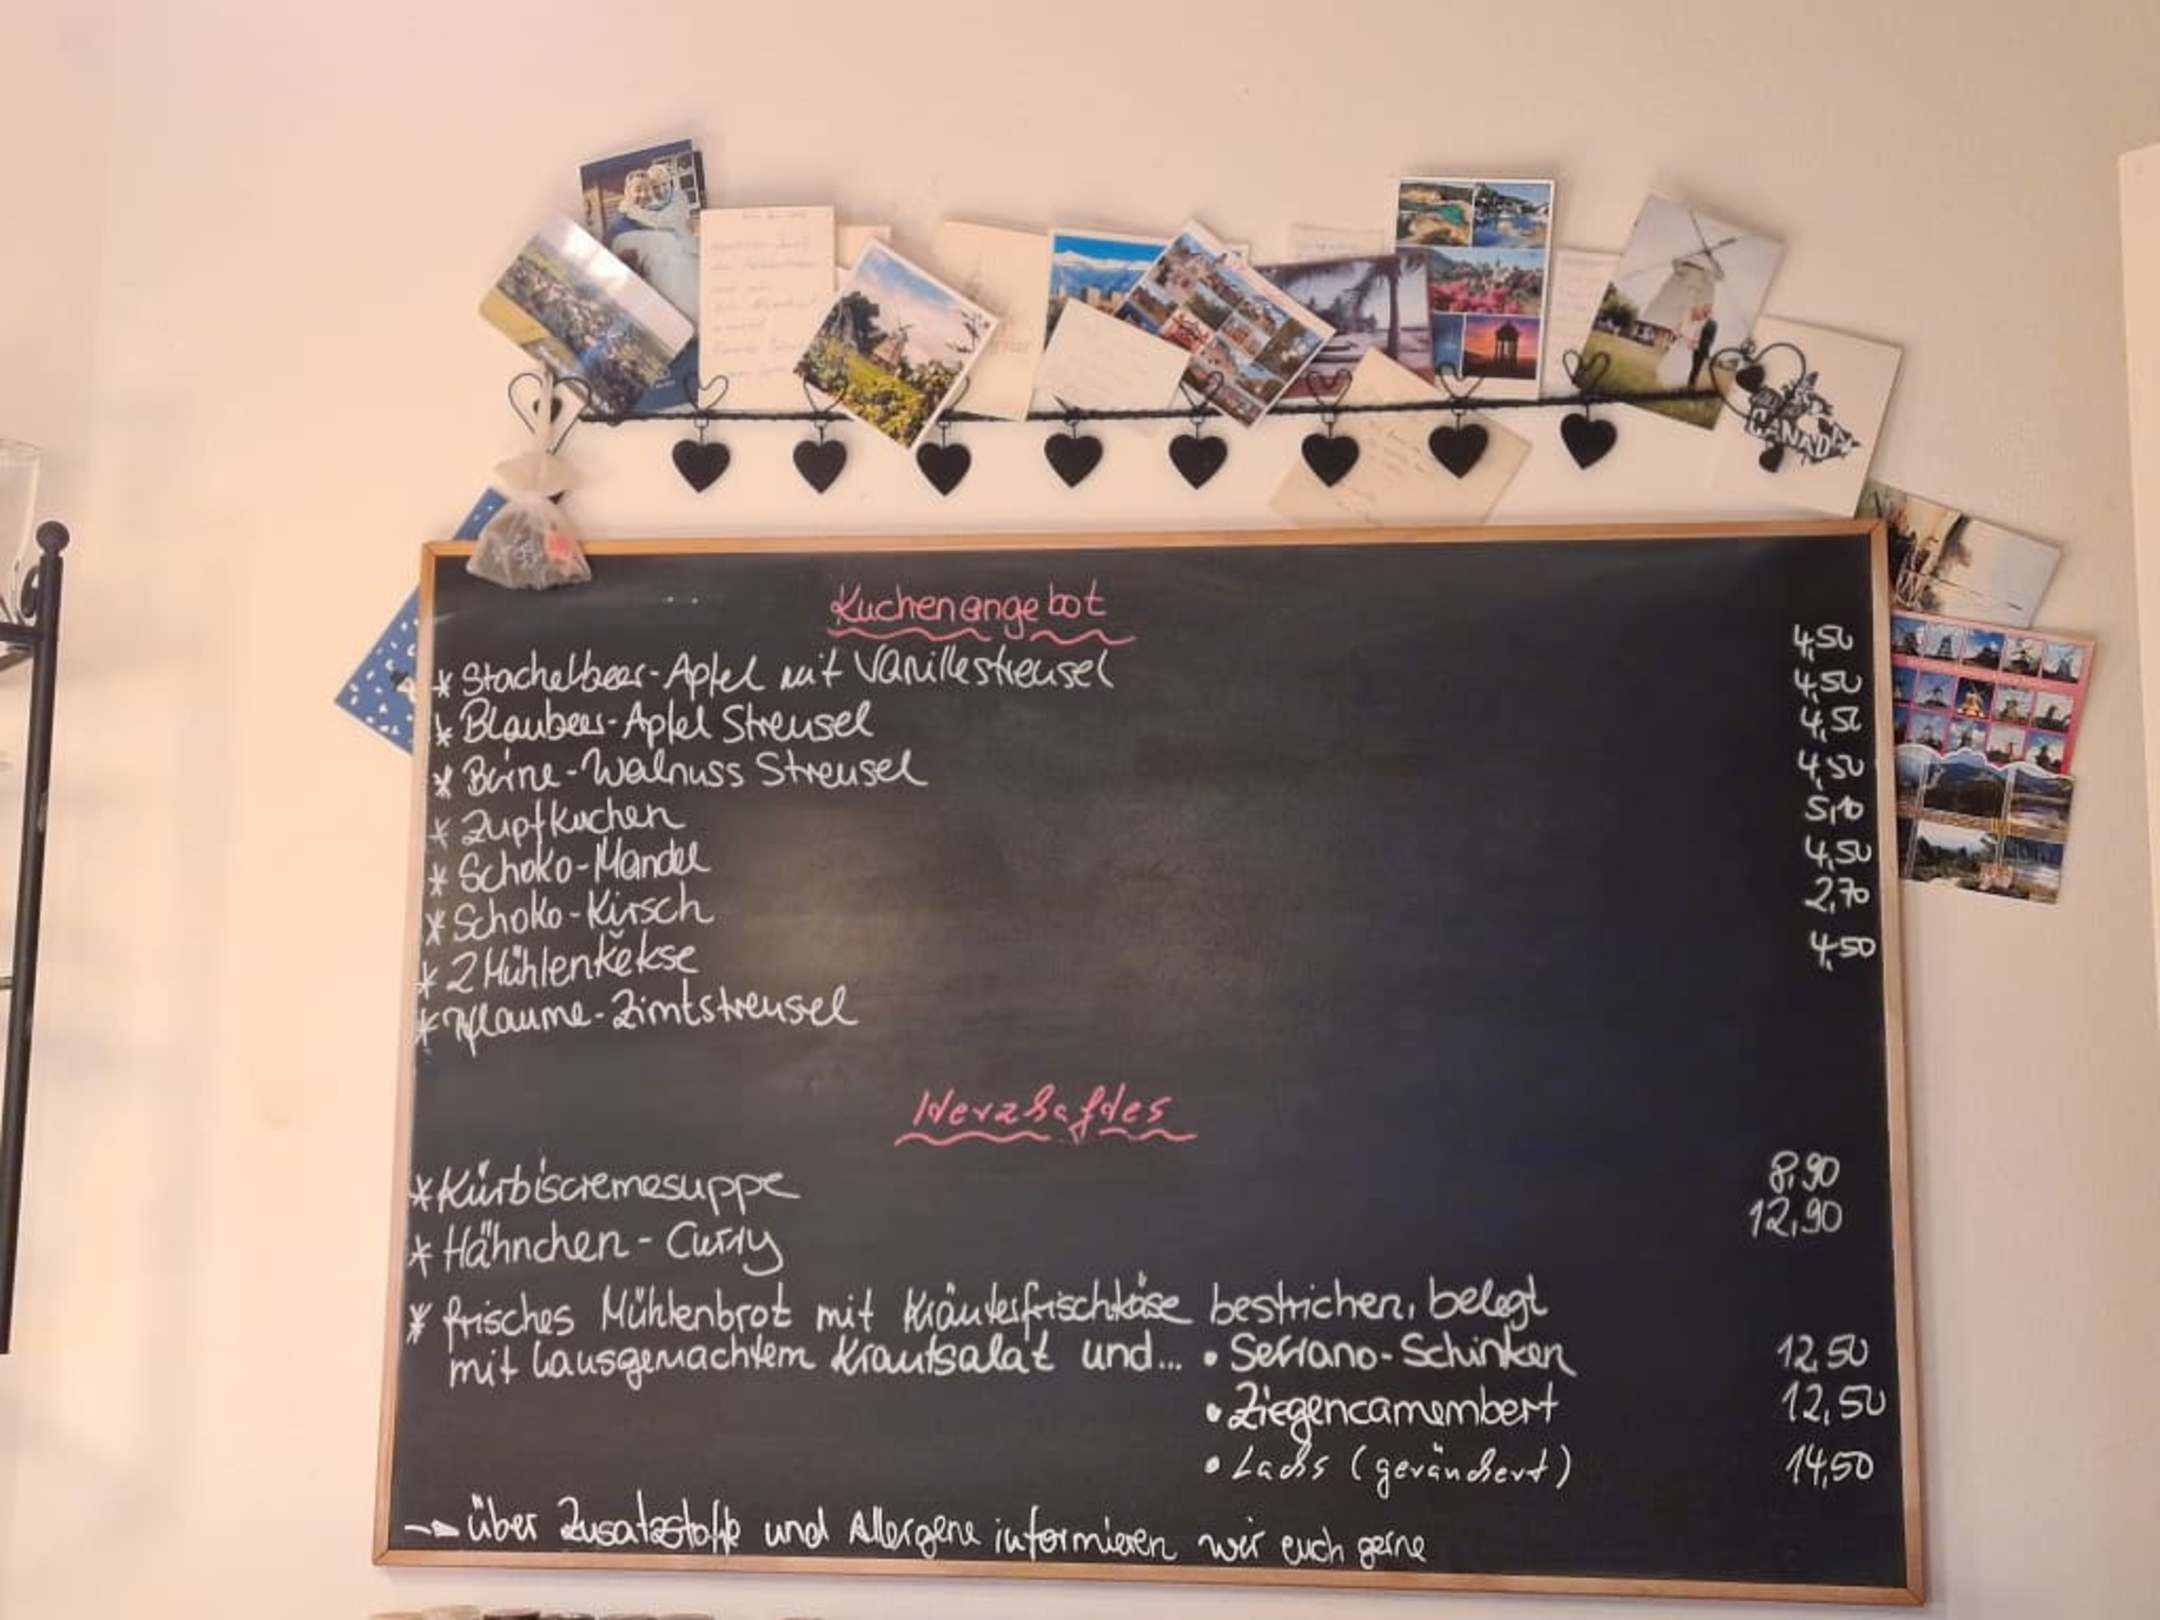 CANADA
Kuchenangebot
* Stachelbeer-Apfel mit Vanillestreusel 4,50
* Blaubeer-Apfel Streusel 4,50
* Birne-Walnuss Streusel 4,50
* Zupfkuchen 4,50
* Schoko-Mandel 5,10
* Schoko-Kirsch 4,50
* 2 Mühlenkekse 2,70
* Pflaume-Zimtstreusel 4,50
Herzhaftes
* Kürbiscremesuppe 8,90
* Hähnchen-Curry 12,90
* frisches Mühlenbrot mit Kräuterfrischkäse bestrichen, belegt
mit hausgemachtem Krautsalat und... • Serrano-Schinken 12,50
• Ziegencamembert 12,50
• Lachs (geräuchert) 14,50
→ über Zusatzstoffe und Allergene informieren wir euch gerne